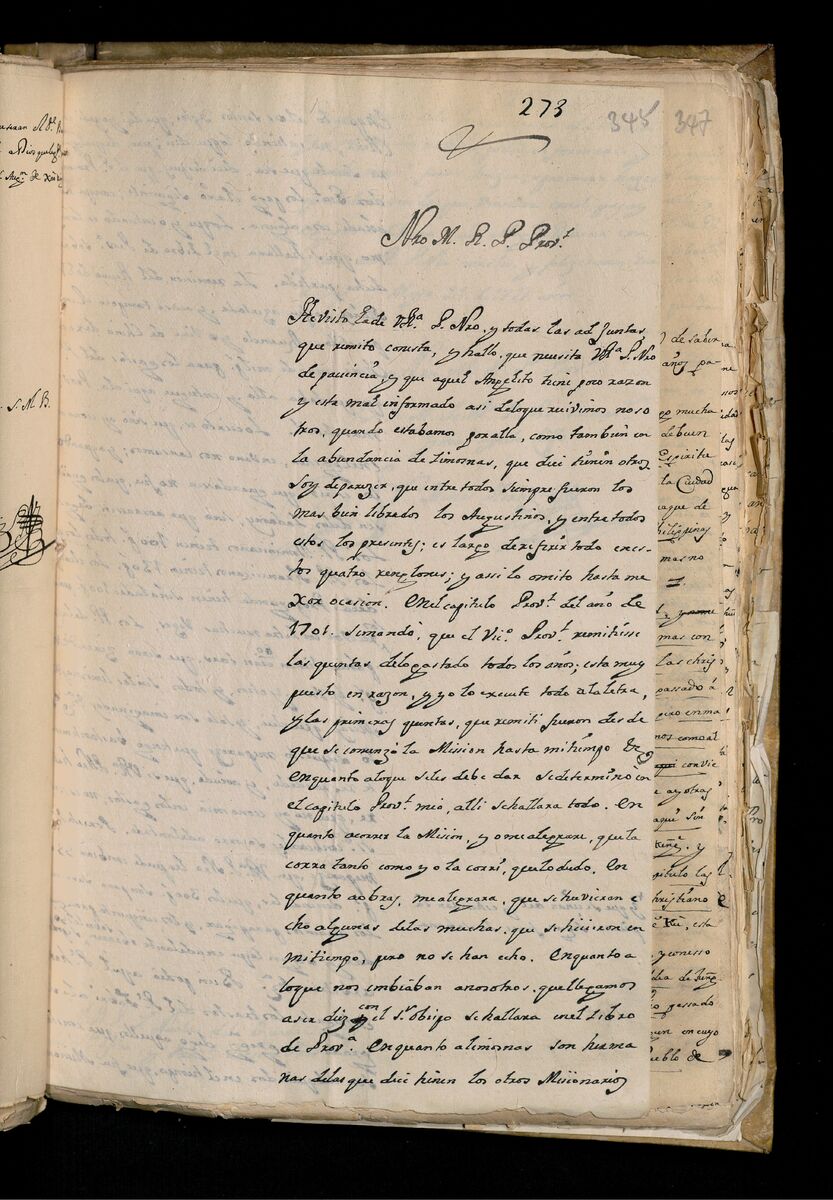 273
345 347
Nro M. R. P. Prov.l
Hé visto la de VR.a P. Nro, y todas las adjuntas
que remito con esta, y hallo, que necesita VR.a P. Nro
de paciencia, y que aquel Angelito tiene poco razon
y esta mal informado asi deloque recivimos noso
tros, quando estabamos por alla, como tambien en
la abundancia de limosnas, que dice tienen otros
soy deparezer, que entre todos siempre fueron los
mas bien librados los Augustinos, y entre todos
estos los presentes; es largo de referir todo en es-
tos quatro renglones; y assi lo omito hasta me
xor ocasion. Enel capitulo Prov.l del año de
1701. semandó, que el Vic.o Prov.l remitiesse
las quentas delo gastado todos los años; esta muy
puesto en razon, y yo lo execute todo ala letra,
y las primeras quentas, que remiti fueron desde
que se comenzó la Mission hasta mi tiempo
Enquanto aloque seles debe dar se determinó en
el capitulo Prov.l mio, alli se hallara todo. En
quanto acorrer la Mision, yo me alegrare, que la
corra tanto como yo la corri, que lo dudo. En
quanto aobras, me alegrara, que se huvieran e
cho algunas delas muchas, que se hicieron en
mi tiempo, pero no se han echo. Enquanto a
loque nos imbiaban anosotros, que llegamos
aser diez con el S.r obispo se hallara en el Libro
de Prov.a Enquanto a limosnas son herma
nas delas que dice tienen los otros Missionarios
S. M. B.
de saber
años pa-
mucha
de buen
Espiritu
la Ciudad
que de
Philippinas
mas no
mas con
las chris
passado á
pero en ma
nos como al
convie
e ay otras
aqui son
pitulo las
christiano
esta
y confesso
passado
en cuyo
Pueblo de